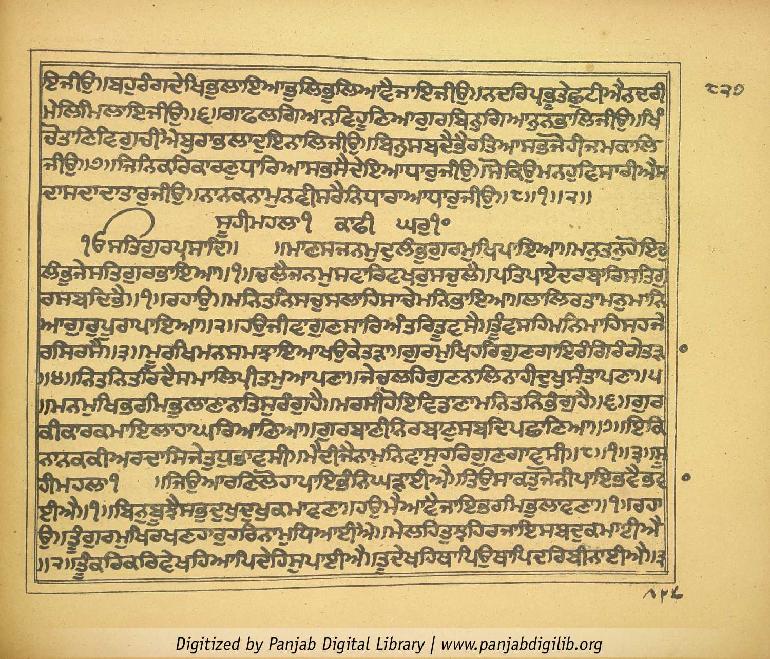 ਇਜੀਉ॥ਬਹੁਰੰਗਦੇਖਿਭੁਲਾਇਆਭੁਲਿਭੁਲਿਆਵੈਜਾਇਜੀਉ॥ਨਦਰਿਪ੍ਰਭੂਤੇਛੁਟੀਐਨਦਰੀ
ਮੇਲਿਮਿਲਾਇਜੀਉ॥੬॥ਗਾਫਲਗਿਆਨਵਿਹੂਣਿਆਗੁਰਬਿਨੁਗਿਆਨੁਨਭਾਲਿਜੀਉ॥ਖਿੰ
ਚੋਤਾਣਿਵਿਗੁਚੀਐਬੁਰਾਭਲਾਦੁਇਨਾਲਿਜੀਉ॥ਬਿਨੁਸਬਦੈਭੈਰਤਿਆਸਭਜੋਹੀਜਮਕਾਲਿ
ਜੀਉ॥੭॥ਜਿਨਿਕਰਿਕਾਰਣੁਧਾਰਿਆਸਭਸੈਦੇਇਆਧਾਰੁਜੀਉ॥ਸੋਕਿਉਮਨਹੁਵਿਸਾਰੀਐਸ
ਦਾਸਦਾਦਾਤਾਰੁਜੀਉ॥ਨਾਨਕਨਾਮੁਨਵੀਸਰੈਨਿਧਾਰਾਆਧਾਰੁਜੀਉ॥੮॥੧॥੨॥
ਸੂਹੀਮਹਲਾ੧ ਕਾਫੀ ਘਰੁ੧੦
ੴਸਤਿਗੁਰਪ੍ਰਸਾਦਿ॥ ॥ਮਾਣਸਜਨਮੁਦੁਲੰਭੁਗੁਰਮੁਖਿਪਾਇਆ॥ਮਨੁਤਨੁਹੋਇਚੁ
ਲੰਭੁਜੇਸਤਿਗੁਰਭਾਇਆ॥੧॥ਚਲੈਜਨਮੁਸਵਾਰਿਵਖਰੁਸਚੁਲੈ॥ਪਤਿਪਾਏਦਰਬਾਰਿਸਤਿਗੁ
ਰਸਬਦਿਭੈ॥੧॥ਰਹਾਉ॥ਮਨਿਤਨਿਸਚੁਸਲਾਹਿਸਾਚੇਮਨਿਭਾਇਆ॥ਲਾਲਿਰਤਾਮਨੁਮਾਨਿ
ਆਗੁਰੁਪੂਰਾਪਾਇਆ॥੨॥ਹਉਜੀਵਾਗੁਣਸਾਰਿਅੰਤਰਿਤੂਵਸੈ॥ਤੂੰਵਸਹਿਮਨਮਾਹਿਸਹਜੇ
ਰਸਿਰਸੈ॥੩॥ਮੂਰਖਮਨਸਮਝਾਇਆਖਉਕੇਤੜਾ॥ਗੁਰਮੁਖਿਹਰਿਗੁਣਗਾਇਰੰਗਿਰੰਗੇਤੜਾ
॥੪॥ਨਿਤਨਿਤਰਿਦੈਸਮਾਲਿਪ੍ਰੀਤਮੁਆਪਣਾ॥ਜੇਚਲਹਿਗੁਣਨਾਲਿਨਾਹੀਦੁਖੁਸੰਤਾਪਣਾ॥੫
॥ਮਨਮੁਖਭਰਮਿਭੁਲਾਣਾਨਤਿਸੁਰੰਗੁਹੈ॥ਮਰਸੀਹੋਇਵਿਡਾਣਾਮਨਿਤਨਿਭੰਗੁਹੈ॥੬॥ਗੁਰ
ਕੀਕਾਰਕਮਾਇਲਾਹਾਘਰਿਆਣਿਆ॥ਗੁਰਬਾਣੀਨਿਰਬਾਣੁਸਬਦਿਪਛਾਣਿਆ॥੭॥ਇਕ
ਨਾਨਕਕੀਅਰਦਾਸਿਜੇਤੁਧੁਭਾਵਸੀ॥ਮੈਦੀਜੈਨਾਮਨਿਵਾਸੁਹਰਿਗੁਣਗਾਵਸੀ॥੮॥੧॥੩॥ਸੂ
ਹੀਮਹਲਾ੧ ॥ਜਿਉਆਰਣਿਲੋਹਾਪਾਇਭੰਨਿਘੜਾਈਐ॥ਤਿਉਸਾਕਤੁਜੋਨੀਪਾਇਭਵੈਭਵਾ
ਈਐ॥੧॥ਬਿਨੁਬੂਝੇਸਭੁਦੁਖੁਦੁਖੁਕਮਾਵਣਾ॥ਹਉਮੈਆਵੈਜਾਇਭਰਮਿਭੁਲਾਵਣਾ॥੧॥ਰਹਾ
ਉ॥ਤੂੰਗੁਰਮੁਖਿਰਖਣਹਾਰੁਹਰਿਨਾਮੁਧਿਆਈਐ॥ਮੇਲਹਿਤੁਝਹਿਰਜਾਇਸਬਦੁਕਮਾਈਐ
॥੨॥ਤੂੰਕਰਿਕਰਿਵੇਖਹਿਆਪਿਦੇਹਿਸੁਪਾਈਐ॥ਤੂਦੇਖਹਿਥਾਪਿਉਥਾਪਿਦਰਿਬੀਨਾਈਐ॥੩
Digitized by Panjab Digital Library | www.panjabdigilib.org